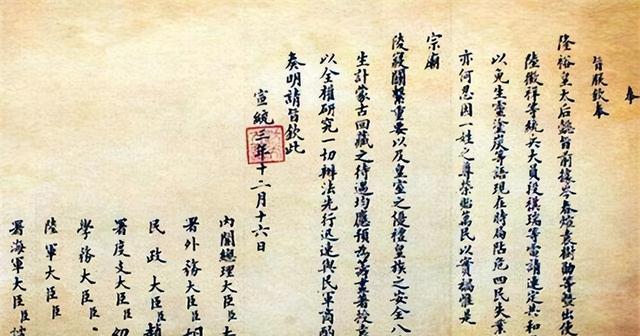 奉
旨朕欽奉
隆裕皇太后懿旨前據岑春煊袁樹勛等暨出使
陸徵祥等統兵大員段祺瑞等電請速定共和
以免生靈塗炭等語現在時局阽危四民失業
亦何忍因一姓之尊榮貽萬民以實禍惟是
宗廟
陵寢關繫重要以及皇室之優禮皇族之安全八
生計蒙古回藏之待遇均應預為籌畫著授袁
以全權研究一切辦法先行迅速與民軍商酌
奏明請旨欽此
宣統三年十二月十六日
內閣總理大臣臣
署外務大臣臣胡
民政大臣臣趙
署度支大臣臣紹
學務大臣臣
陸軍大臣臣
署海軍大臣臣